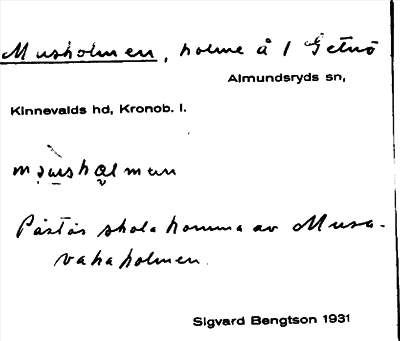 Musholmen, holme å / Getnö
Almundsryds sn,
Kinnevalds hd, Kronob. l.
Påstås skola komma av Musa-
vakaholmen.
Sigvard Bengtson 1931